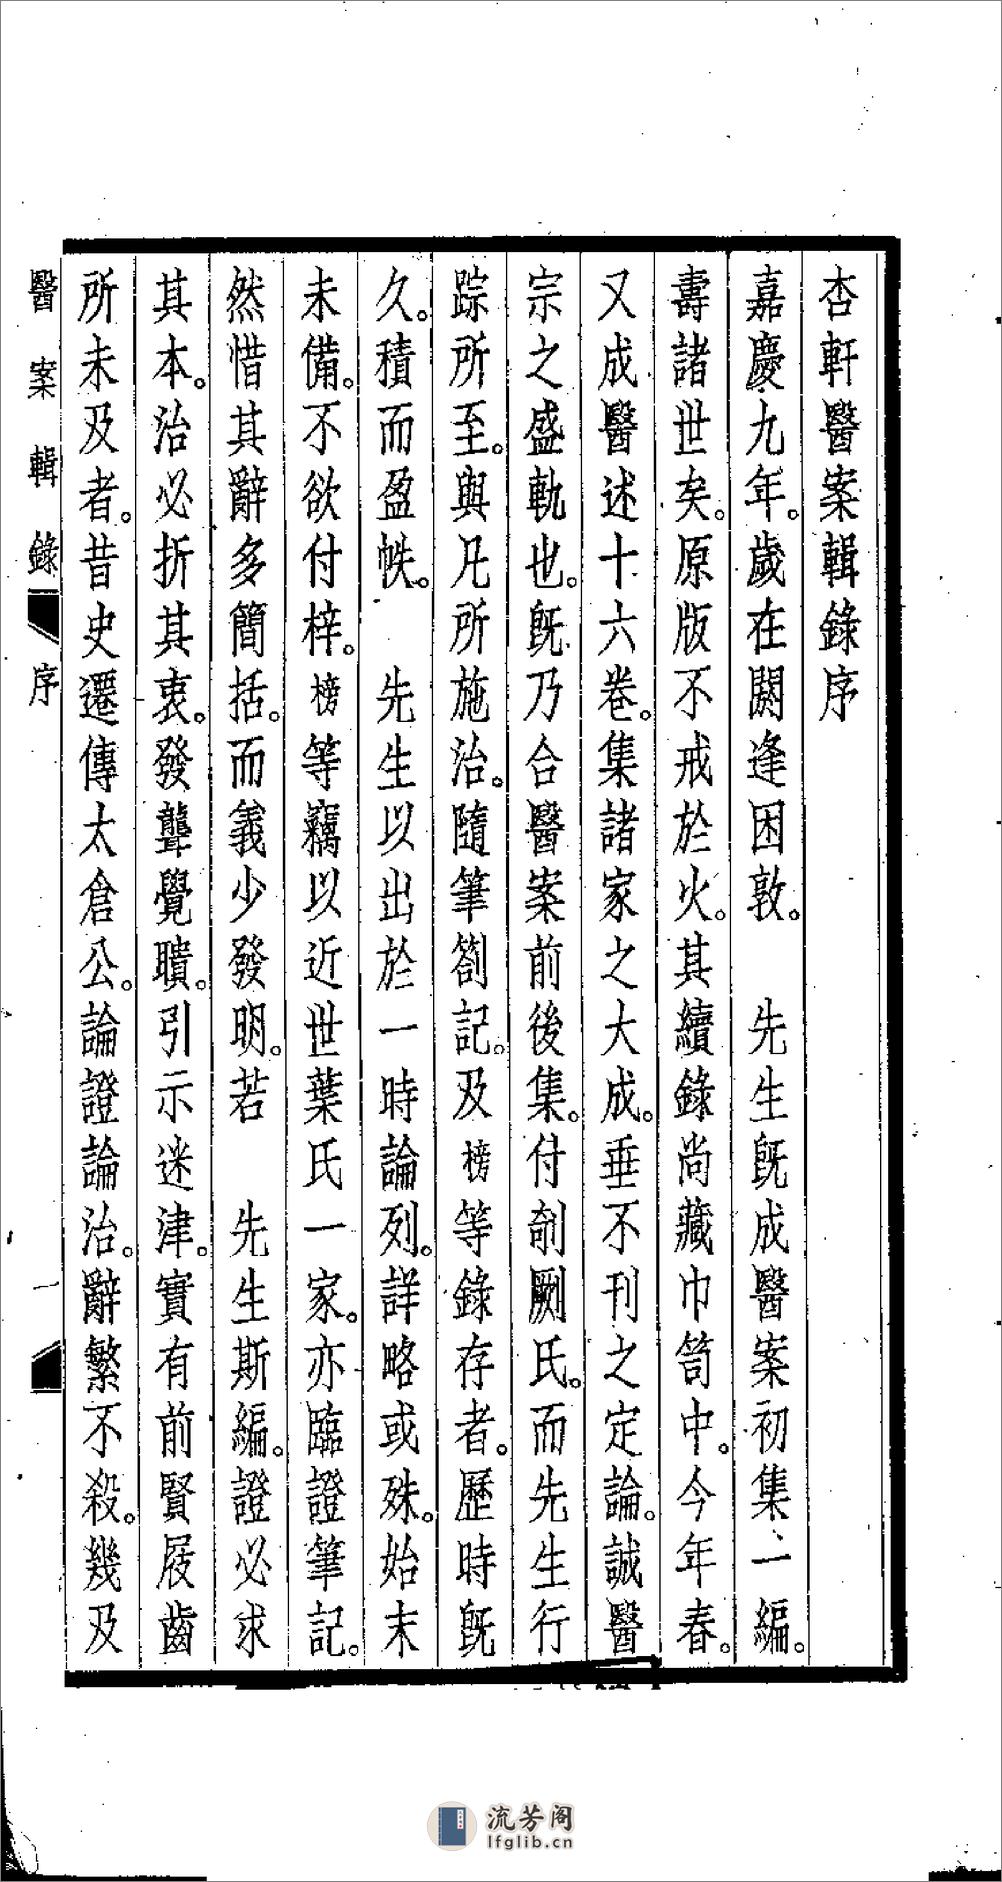 杏軒醫案輯錄序
嘉慶九年。歲在閼逢困敦。　先生旣成醫案初集一編。
壽諸世矣。原版不戒於火。其續錄尚藏巾笥中。今年春。
又成醫述十六卷。集諸家之大成。垂不刊之定論。誠醫
宗之盛軌也。旣乃合醫案前後集。付剞劂氏。而先生行
踪所至。與凡所施治。隨筆劄記。及榜等錄存者。歷時旣
久。積而盈帙。　先生以出於一時論列。詳略或殊。始末
未備。不欲付梓。榜等竊以近世葉氏一家。亦臨證筆記。
然惜其辭多簡括。而義少發明。若　先生斯編。證必求
其本。治必折其衷。發聾覺聵。引示迷津。實有前賢屐齒
所未及者。昔史遷傳太倉公。論證論治。辭繁不殺。幾及
醫案輯錄　序　一
流芳阁
lfglib.cn